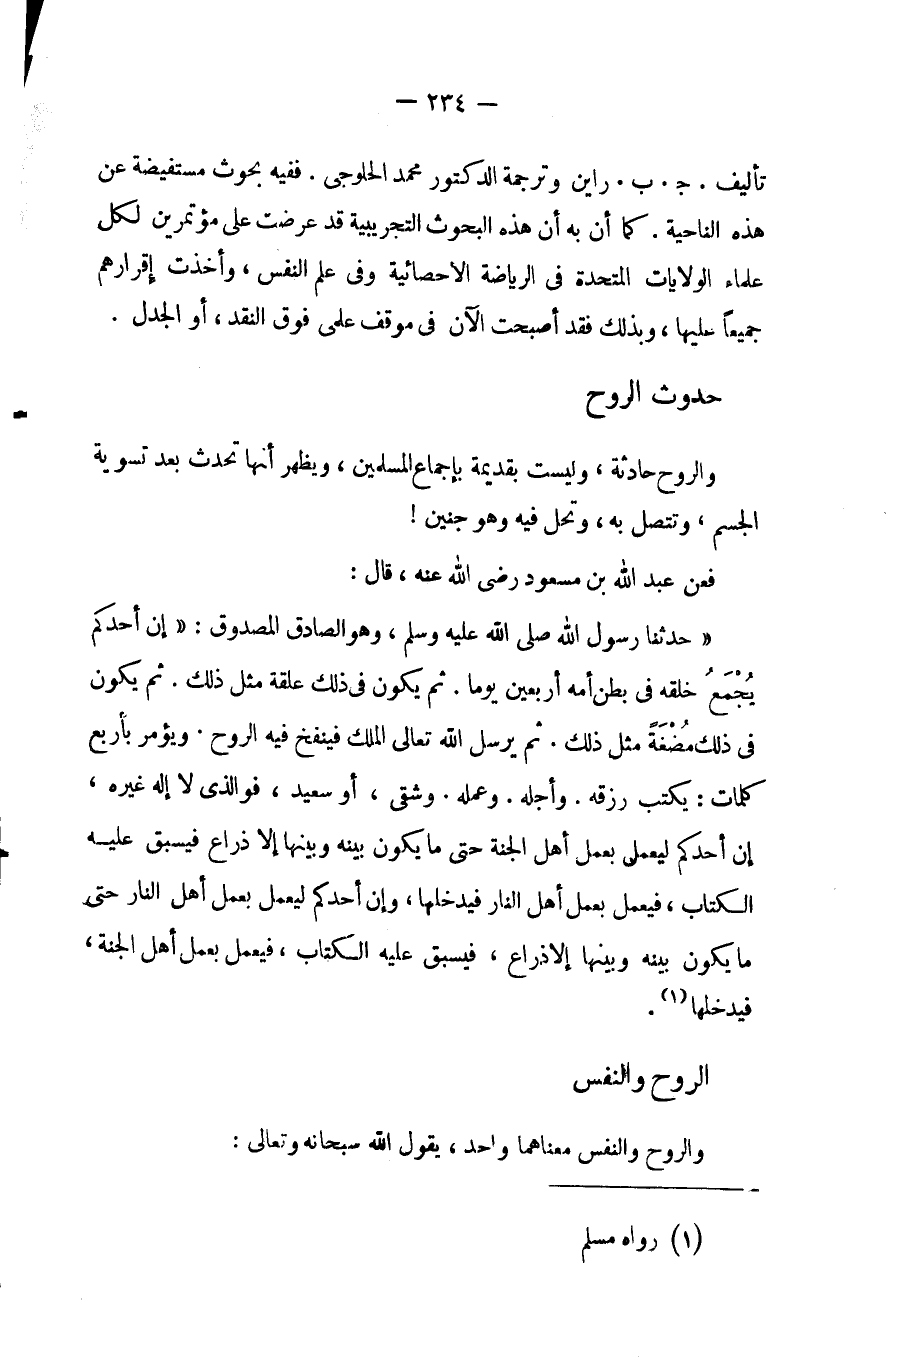 — ٢٣٤ —
تأليف . ج . ب . راين وترجمة الدكتور محمد الحلوجى . ففيه بحوث مستفيضة عن
هذه الناحية . كما أن به أن هذه البحوث التجريبية قد عرضت على مؤتمرين لكل
علماء الولايات المتحدة فى الرياضة الاحصائية وفى علم النفس ، وأخذت إقرارهم
جميعاً عليها ، وبذلك فقد أصبحت الآن فى موقف علمى فوق النقد ، أو الجدل .
حدوث الروح
والروح حادثة ، وليست بقديمة بإجماع المسلمين ، ويظهر أنها تحدث بعد تسوية
الجسم ، وتتصل به ، وتحل فيه وهو جنين !
فعن عبد الله بن مسعود رضى الله عنه ، قال :
« حدثنا رسول الله صلى الله عليه وسلم ، وهو الصادق المصدوق : « إن أحدكم
يُجْمَعُ خلقه فى بطن أمه أربعين يوما . ثم يكون فى ذلك علقة مثل ذلك . ثم يكون
فى ذلك مُضْغَةً مثل ذلك . ثم يرسل الله تعالى الملك فينفخ فيه الروح . ويؤمر بأربع
كلمات : يكتب رزقه . وأجله . وعمله . وشقى ، أو سعيد ، فوالذى لا إله غيره ،
إن أحدكم ليعمل بعمل أهل الجنة حتى ما يكون بينه وبينها إلا ذراع فيسبق عليـه
الكتاب ، فيعمل بعمل أهل النار فيدخلها ، وإن أحدكم ليعمل بعمل أهل النار حتى
ما يكون بينه وبينها إلا ذراع ، فيسبق عليه الكتاب ، فيعمل بعمل أهل الجنة ،
فيدخلها (١) .
الروح والنفس
والروح والنفس معناهما واحد ، يقول الله سبحانه وتعالى :
(١) رواه مسلم